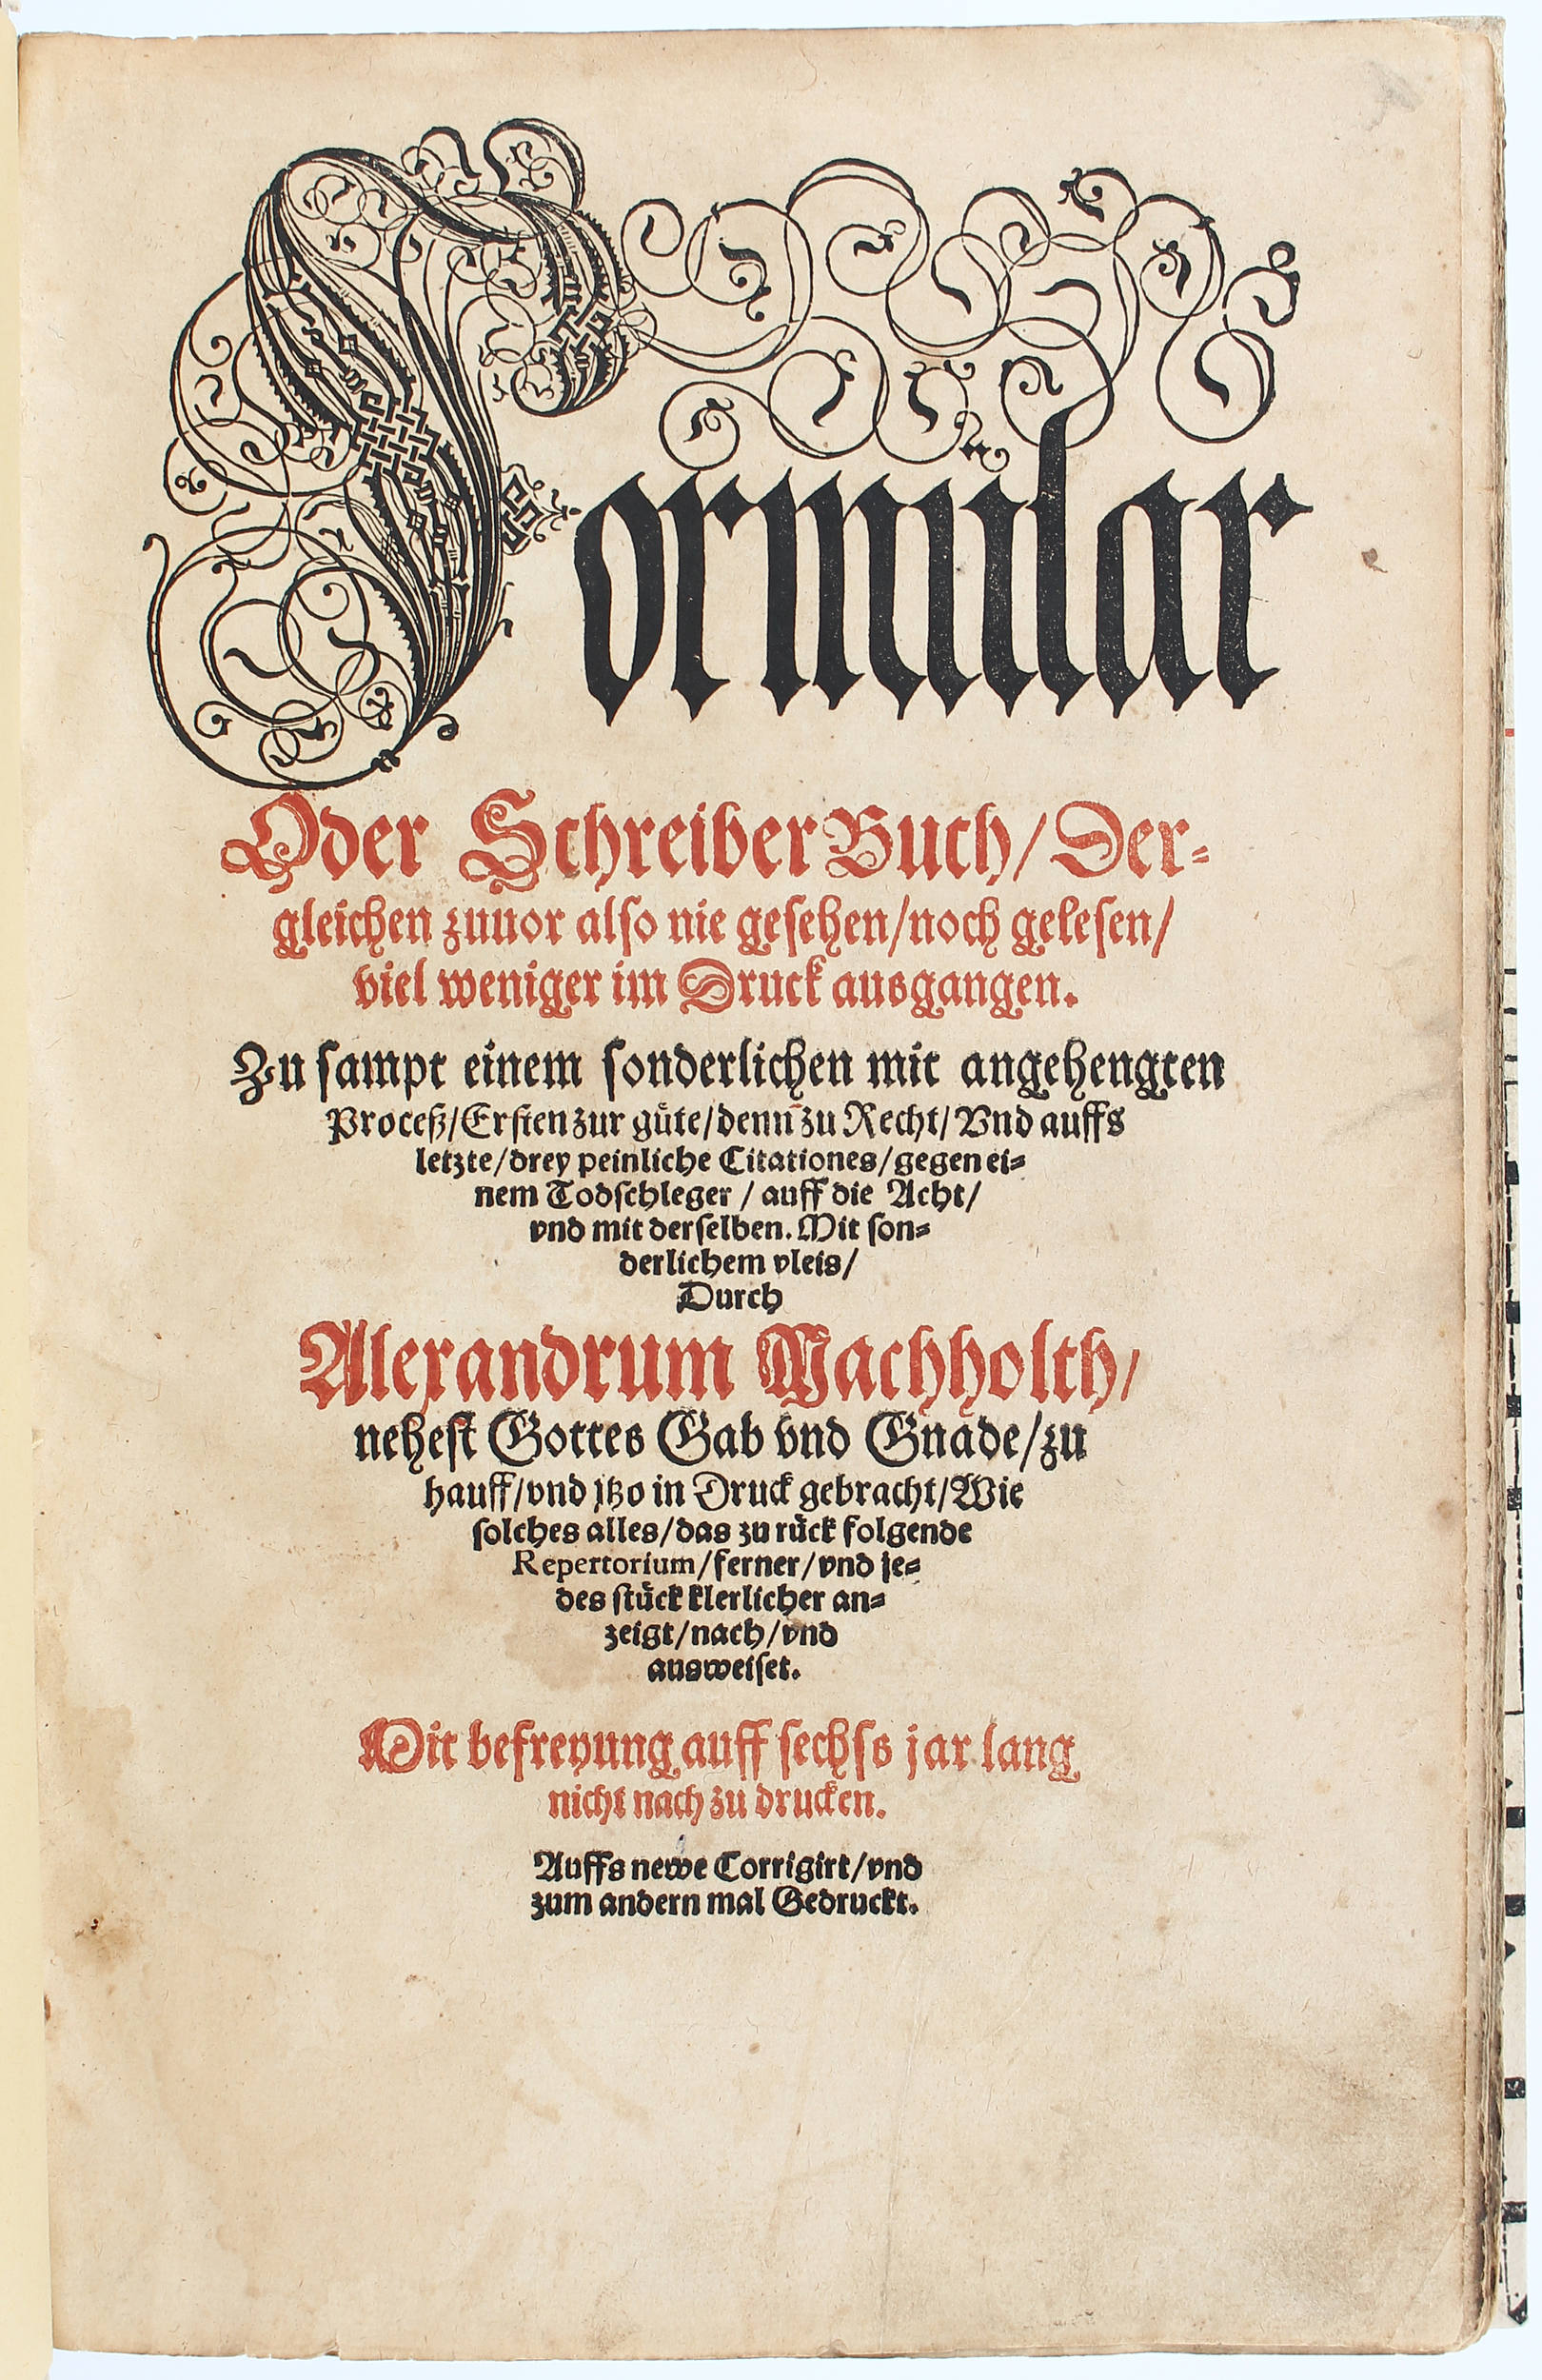 Formular
Oder Schreiber Buch/ Der⸗
gleichen zuuor also nie gesehen/noch gelesen/
viel weniger im Druck ausgangen.
Zu sampt einem sonderlichen mit angehengten
Proceß/Ersten zur guͤte/denn zu Recht/ Vnd auffs
letzte/drey peinliche Citationes/gegen ei⸗
nem Todschleger / auff die Acht/
vnd mit derselben. Mit son⸗
derlichem vleis/
Durch
Alexandrum Machholth/
nehest Gottes Gab vnd Gnade/zu
hauff/vnd jtzo in Druck gebracht/Wie
solches alles/das zu ruͤck folgende
Repertorium/ferner/vnd je⸗
des stuͤck klerlicher an⸗
zeigt/nach/vnd
ausweiset.
Mit befreyung auff sechss jar lang
nicht nach zu drucken.
Auffs newe Corrigirt/vnd
zum andern mal Gedruckt.